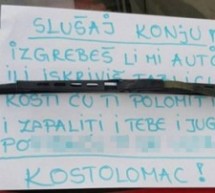 SLUŠAJ KONJU!
IZGREBEŠ LI MI AUTO
ILI ISKRIVIŠ
KOSTI ĆU TI POLOMIT
I ZAPALITI I TEBE I JUG
PO
KOSTOLOMAC!